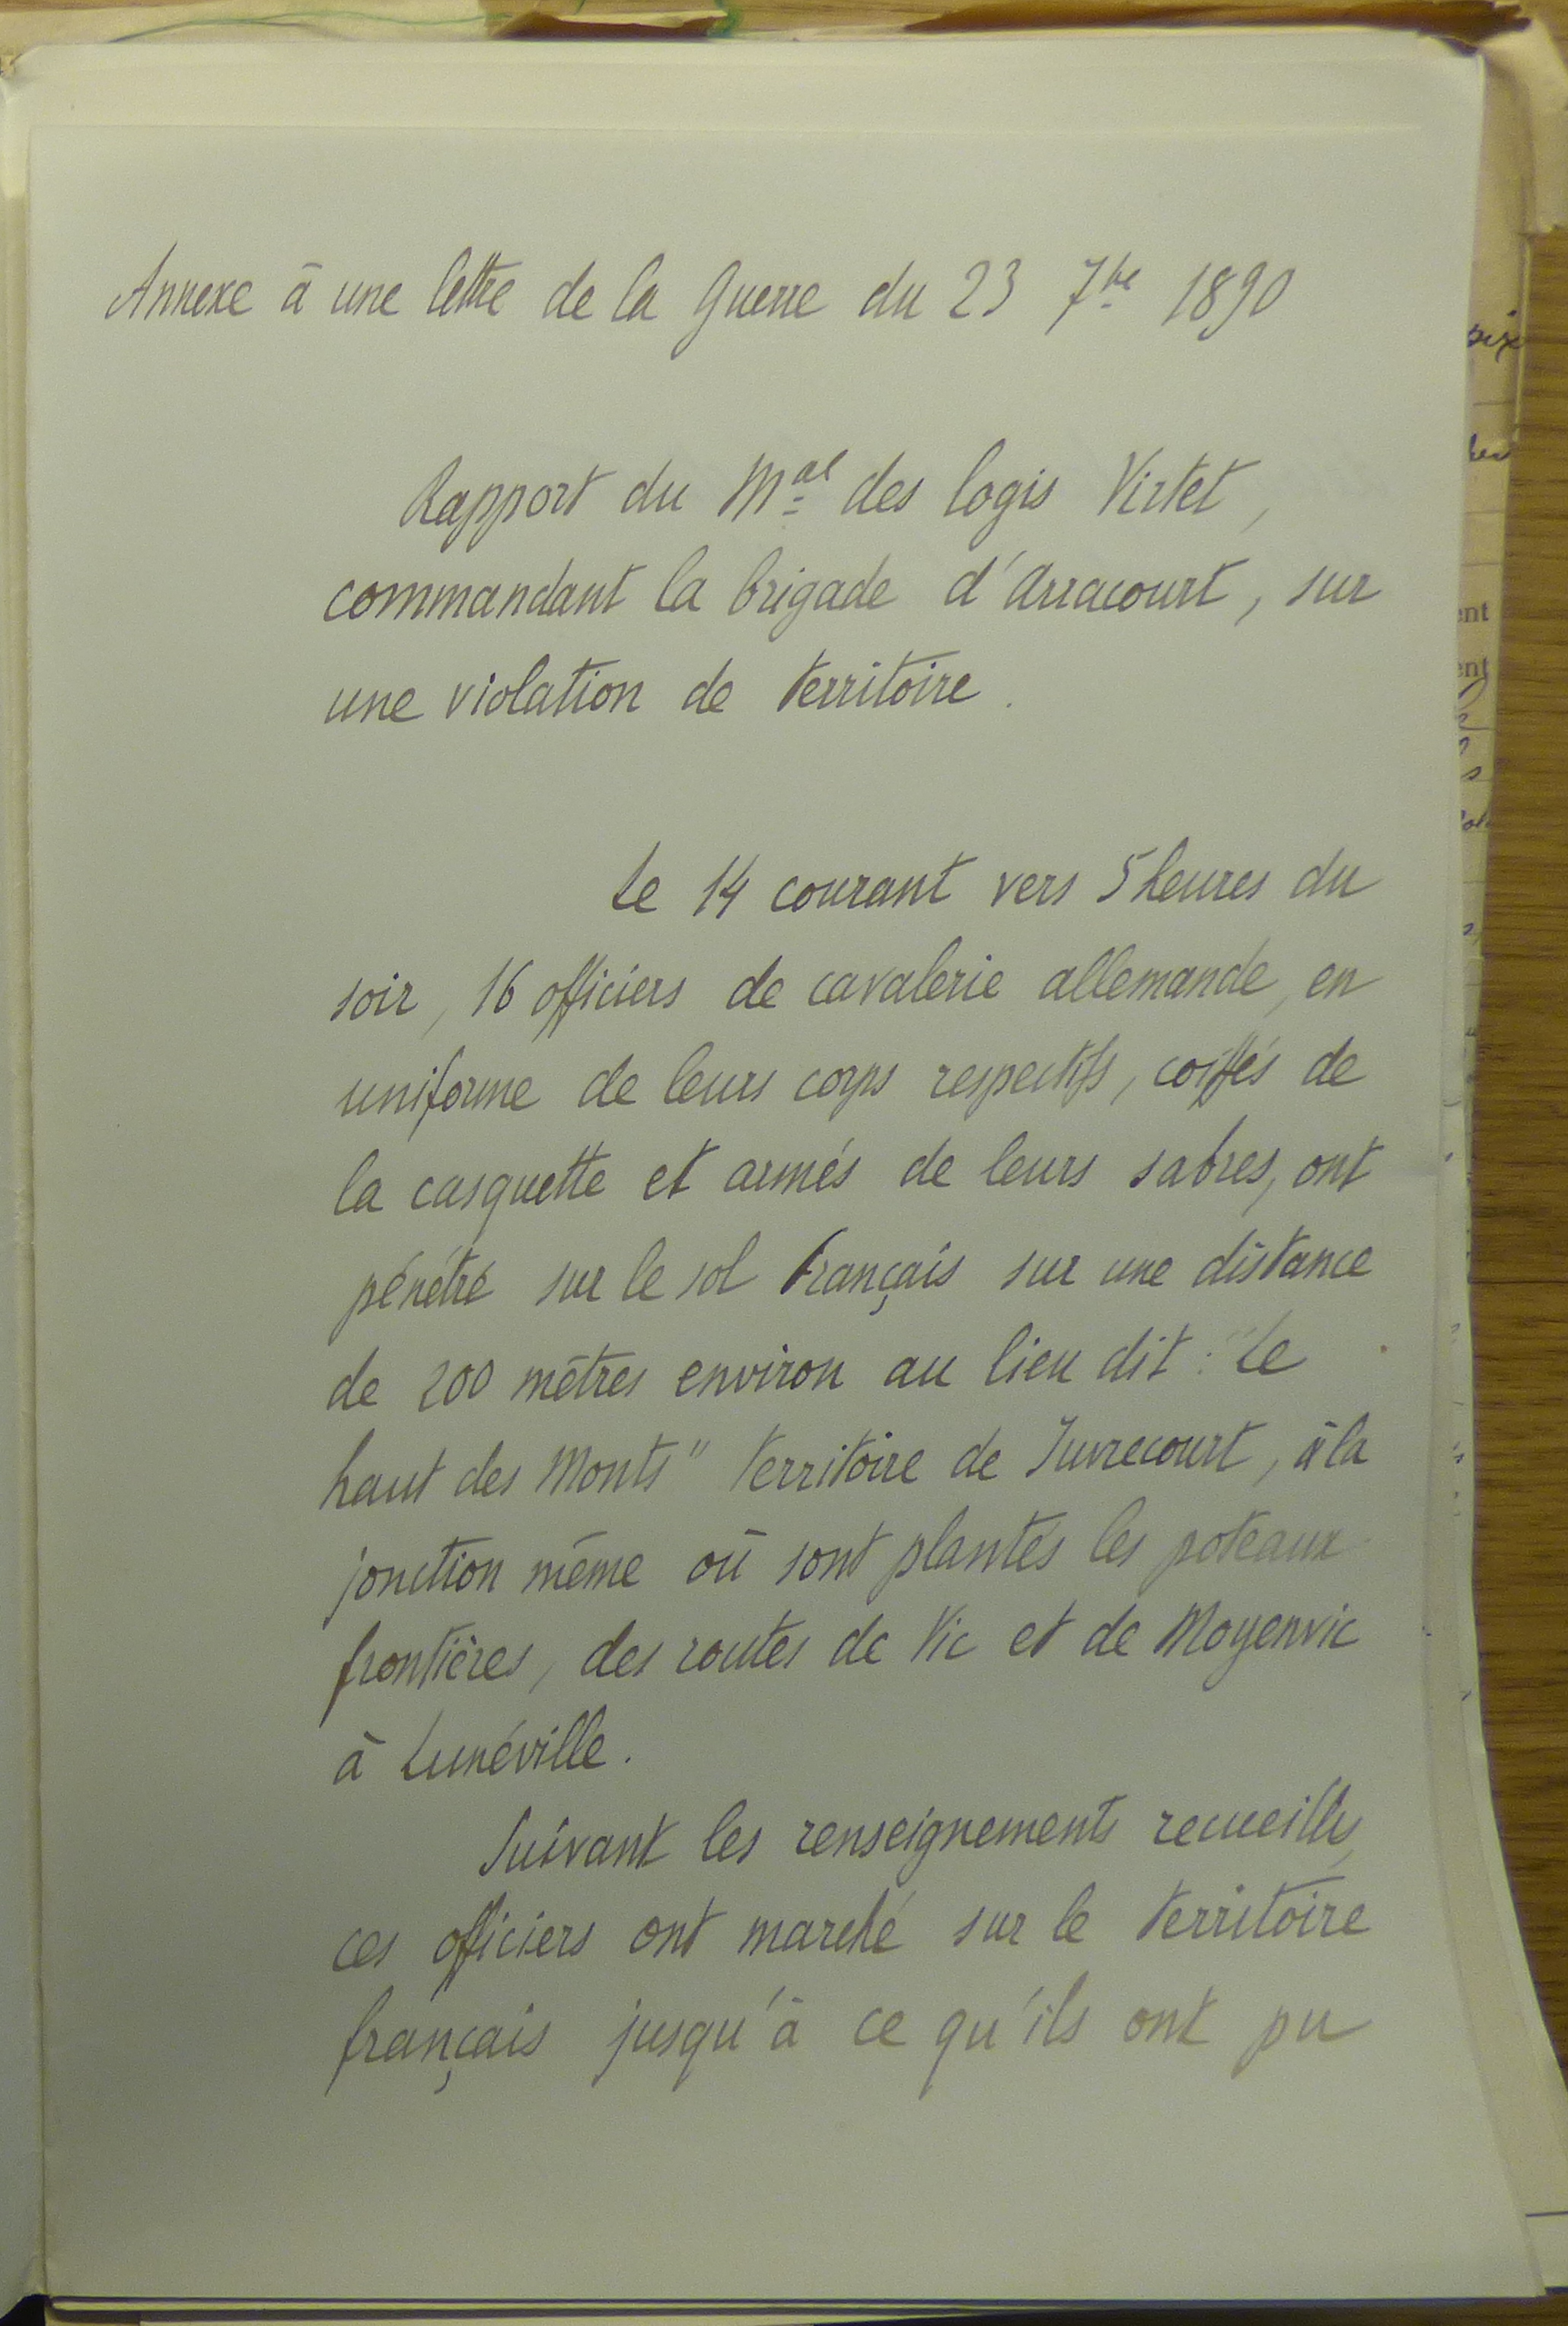 Annexe à une lettre de la Guerre du 23 7bre 1890
Rapport du Mal des logis Virtet,
commandant la brigade d'Arracourt, sur
une violation de territoire.
Le 14 courant vers 5 heures du
soir, 16 officiers de cavalerie allemande, en
uniforme de leurs corps respectifs, coiffés de
la casquette et armés de leurs sabres, ont
pénétré sur le sol français sur une distance
de 200 mètres environ au lieu dit : "Le
haut des Monts" territoire de Juvrecourt, à la
jonction même où sont plantés les poteaux
frontières, des routes de Vic et de Moyenvic
à Lunéville.
Suivant les renseignements recueillis,
ces officiers ont marché sur le territoire
français jusqu'à ce qu'ils ont pu